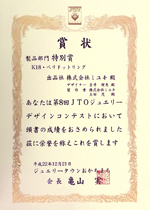 賞状
製品部門 特別賞
K18・ペリドットリング
出品社 株式会社ミユキ 殿
デザイナー
製作者 株式会社ミユキ
あなたは第8回JTOジュエリー
デザインコンテストにおいて
頭書の成績をおさめられました
茲に栄誉を称えこれを賞します
平成22年12月21日
ジュエリータウンおかちまち
会長 亀山